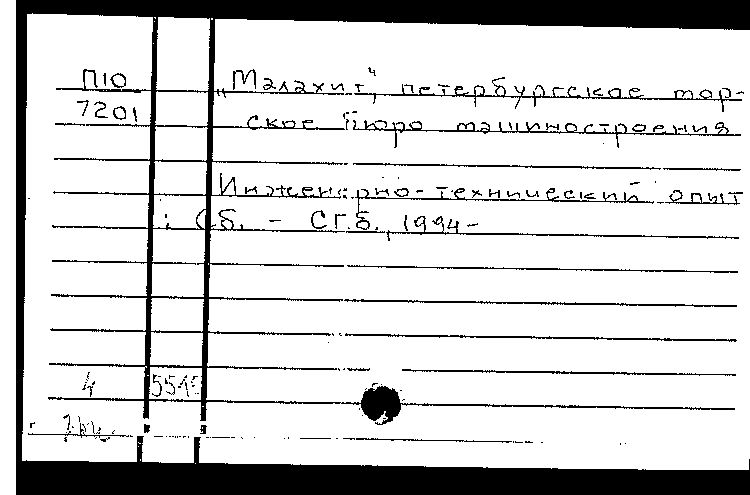 П10 „Малахит“, петербургское мор-
7201 ское бюро машиностроения
Инженерно-технический опыт
: Сб. - СПб., 1994-
4